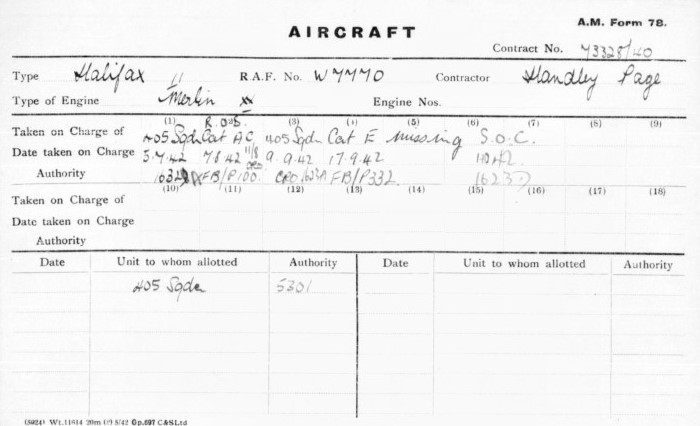 A.M. Form 78.
AIRCRAFT
Contract No. 73328/40
Type Halifax II R.A.F. No. W7770 Contractor Handley Page
Type of Engine Merlin XX Engine Nos.
(1) R.O.S. (3) (4) (5) (6) (7) (8) (9)
Taken on Charge of 405 Sqdn Cat AC 405 Sqdn Cat E Missing S.O.C.
Date taken on Charge 5.7.42 7.8.42 11/8 9.9.42 17.9.42
Authority FB/P100. CRO FB/P332.
(10) (11) (12) (13) (14) (15) (16) (17) (18)
Taken on Charge of
Date taken on Charge
Authority
Date Unit to whom allotted Authority Date Unit to whom allotted Authority
405 Sqdn 5301
(3924) Wt.11614 20m 5/42 Gp.697 C&SLtd